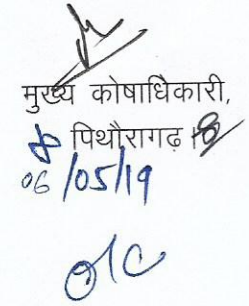 मुख्य कोषाधिकारी,
पिथौरागढ़।
06/05/19
O/C